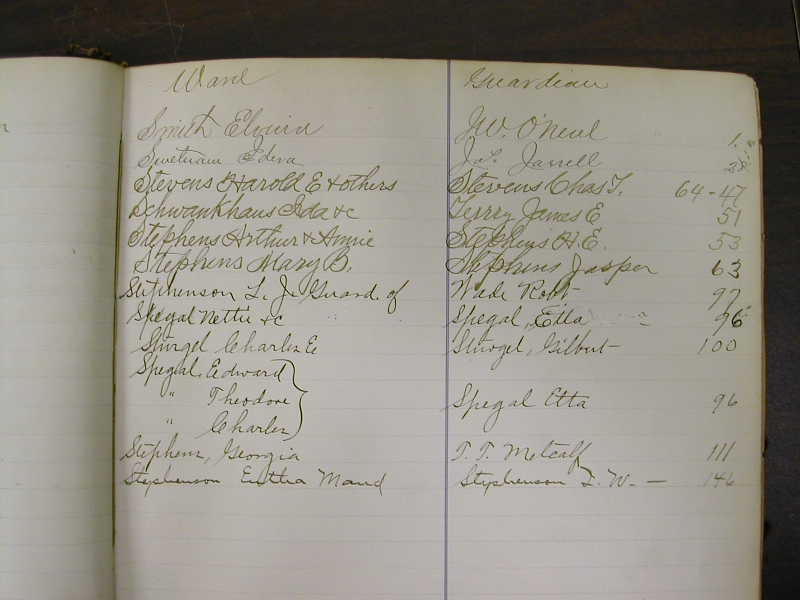 Ward Guardian
Smith Elmira J.W. O'Neal 1.
Swetnam Edera Jas. Jarrell 28
Stevens Harold E & others Stevens Chas T. 64-47
Schwankhaus Ida &c Terry James E 51
Stephens Arthur & Annie Stephens H.E. 53
Stephens Mary B. Stephens Jasper 63
Stephenson L. J. Guard. of Wade Robt 97
Spegal Nettie &c Spegal, Etta 96
Sturgel Charles E Sturgel, Gilbert 100
Spegal, Edward
" Theodore Spegal Etta 96
" Charles
Stephens, Georgia T. T. Metcalf 111
Stephenson Maud Stephenson L. W. — 146